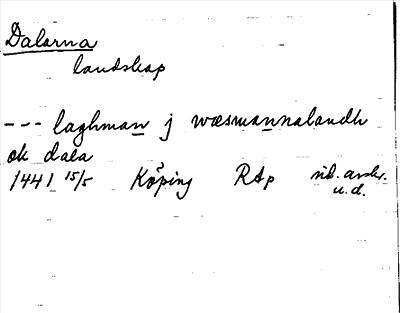 Dalarna
landskap
--- laghman j wæsmannalandh
ok dala
1441 15/5 Köping RAp
u.d.